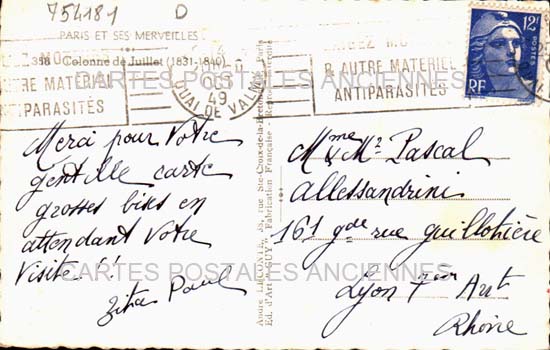 754181 D
PARIS ET SES MERVEILLES
358 Colonne de Juillet (1831-1840)
& AUTRE MATERIEL
ANTIPARASITÉS
49
QUAI DE VALMY
& AUTRE MATERIEL
ANTIPARASITÉS
12F
POSTES
RF
CARTES POSTALES ANCIENNES
Merci pour votre
gentille carte
grosses bises en
attendant votre
visite !!
Zita Paul
André LECONTE, 38, rue Ste-Croix-de-la-Bretonnerie, Paris
Ed. d'Art "GUY" Fabrication Française
Mme & Mr Pascal
Allessandrini
161 gde rue guillotière
Lyon 7
Rhône
CARTES POSTALES ANCIENNES